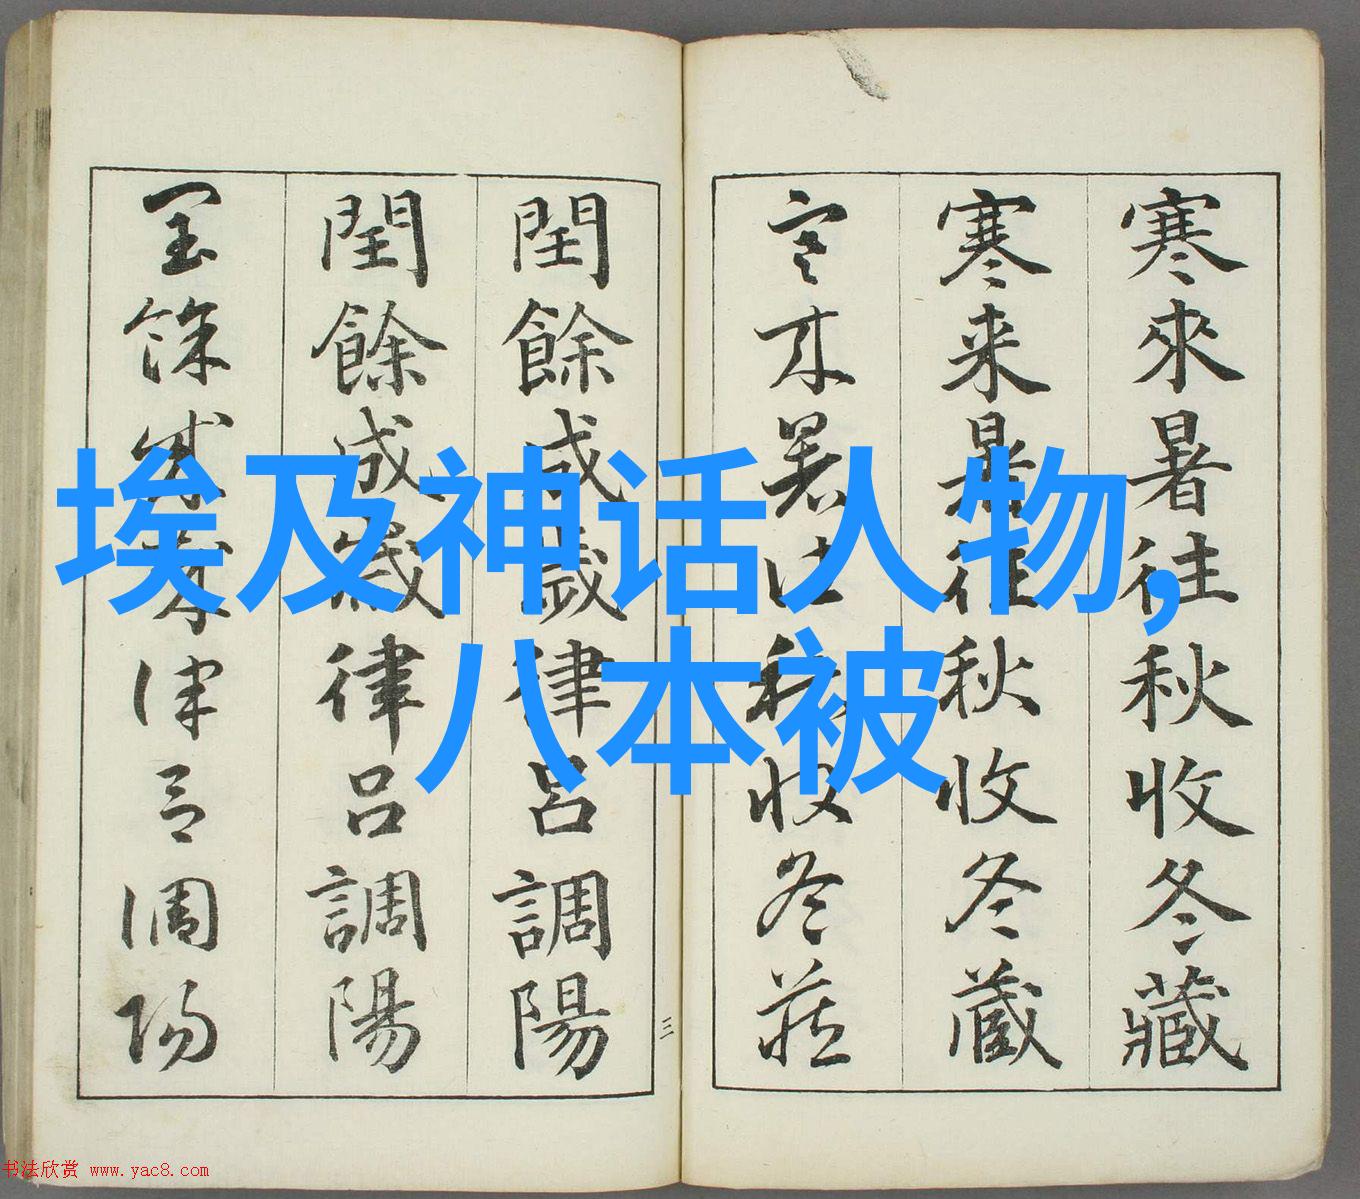 寒來暑往秋收冬藏
寒来暑往秋收冬蔵
寒来暑往秋收冬藏
閏餘成歲律呂調陽
閏餘成歳律呂調陽
閏餘成歲律呂調陽
三
埃及神话人物,
八本被
书法欣赏 www.yac8.com